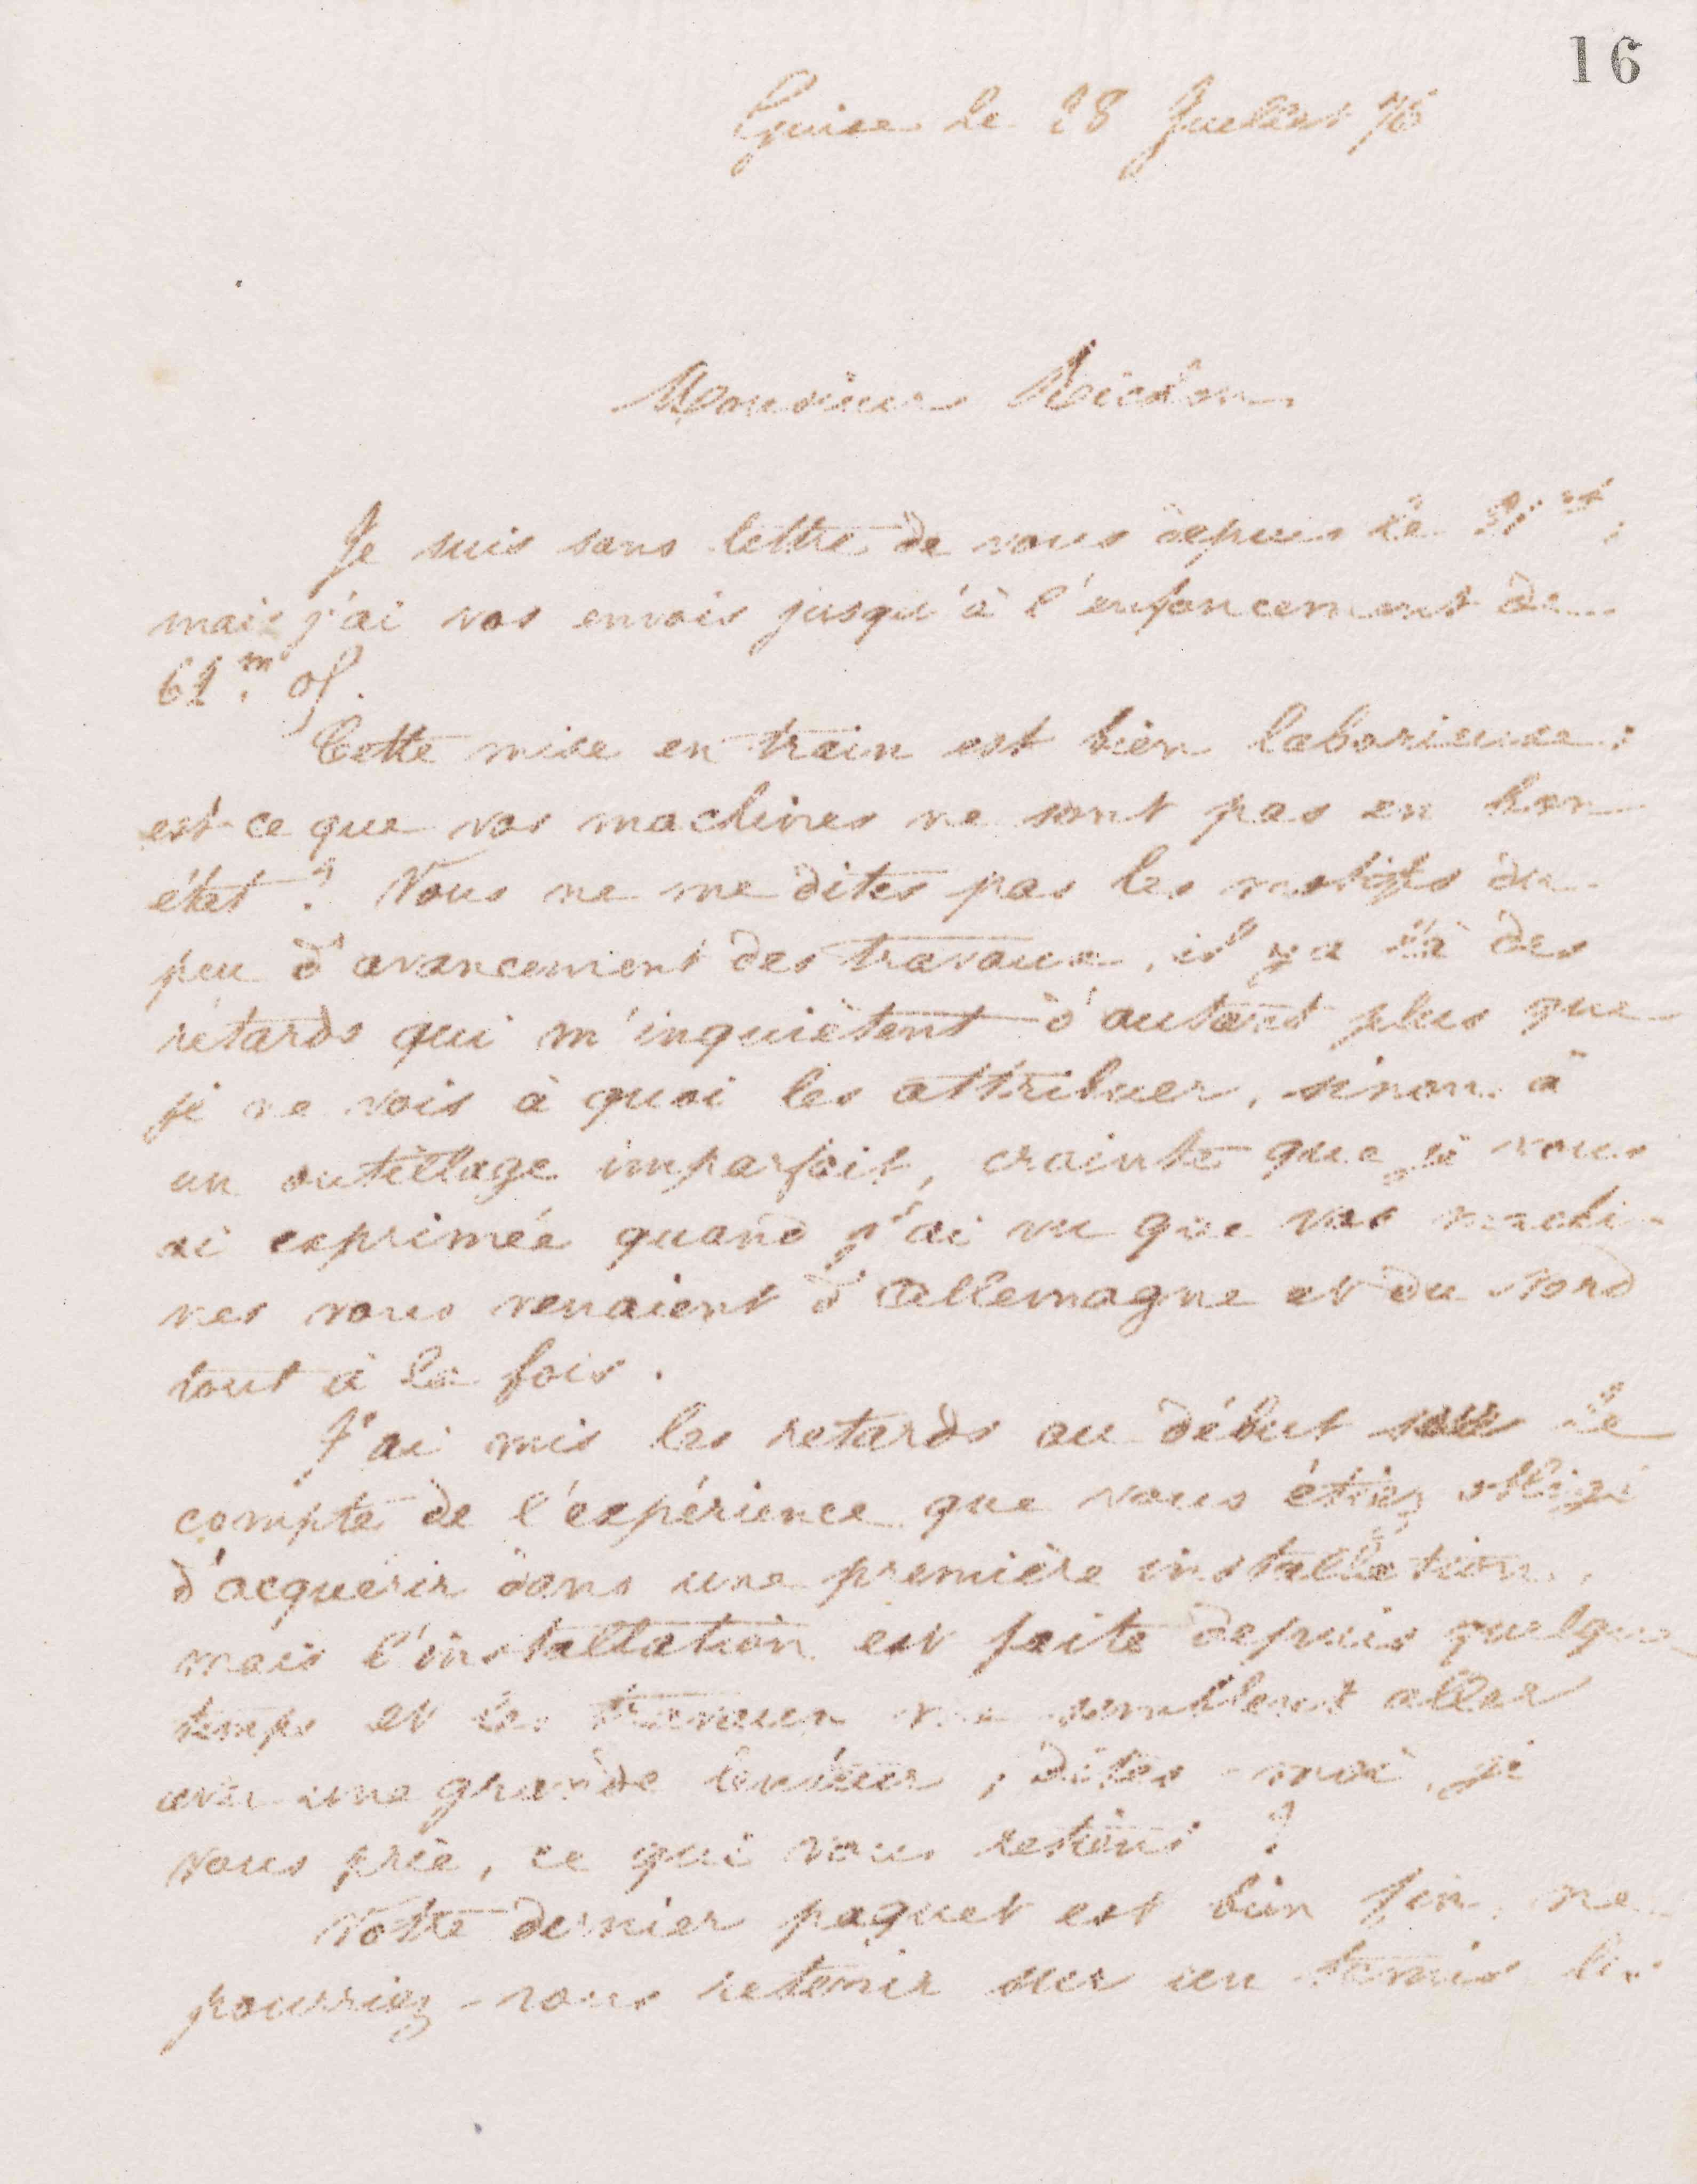 16
Guise le 28 Juillet 76
Monsieur
Je suis sans lettre de vous depuis le
mais j'ai vos envois jusqu'à l'enfoncement de
61.m of.
Cette mise en train est bien laborieuse ;
est ce que vos machines ne sont pas en bon
état ? Vous ne me dites pas les motifs du
peu d'avancement des travaux, il y a là des
retards qui m'inquiètent d'autant plus que
je ne vois à quoi les attribuer, sinon à
un outillage imparfait, crainte que je vous
ai exprimée quand j'ai vu que vos machi-
nes vous venaient d'Allemagne et du Nord
tout à la fois.
J'ai mis les retards au début sur le
compte de l'expérience que vous étiez obligé
d'acquérir dans une première installation,
mais l'installation est faite depuis quelque
temps et les travaux me semblent aller
avec une grande lenteur ; dites-moi, je
vous prie, ce qui vous retient ?
Votre dernier paquet est bien fin, ne
pourriez-vous retenir sur un tamis les